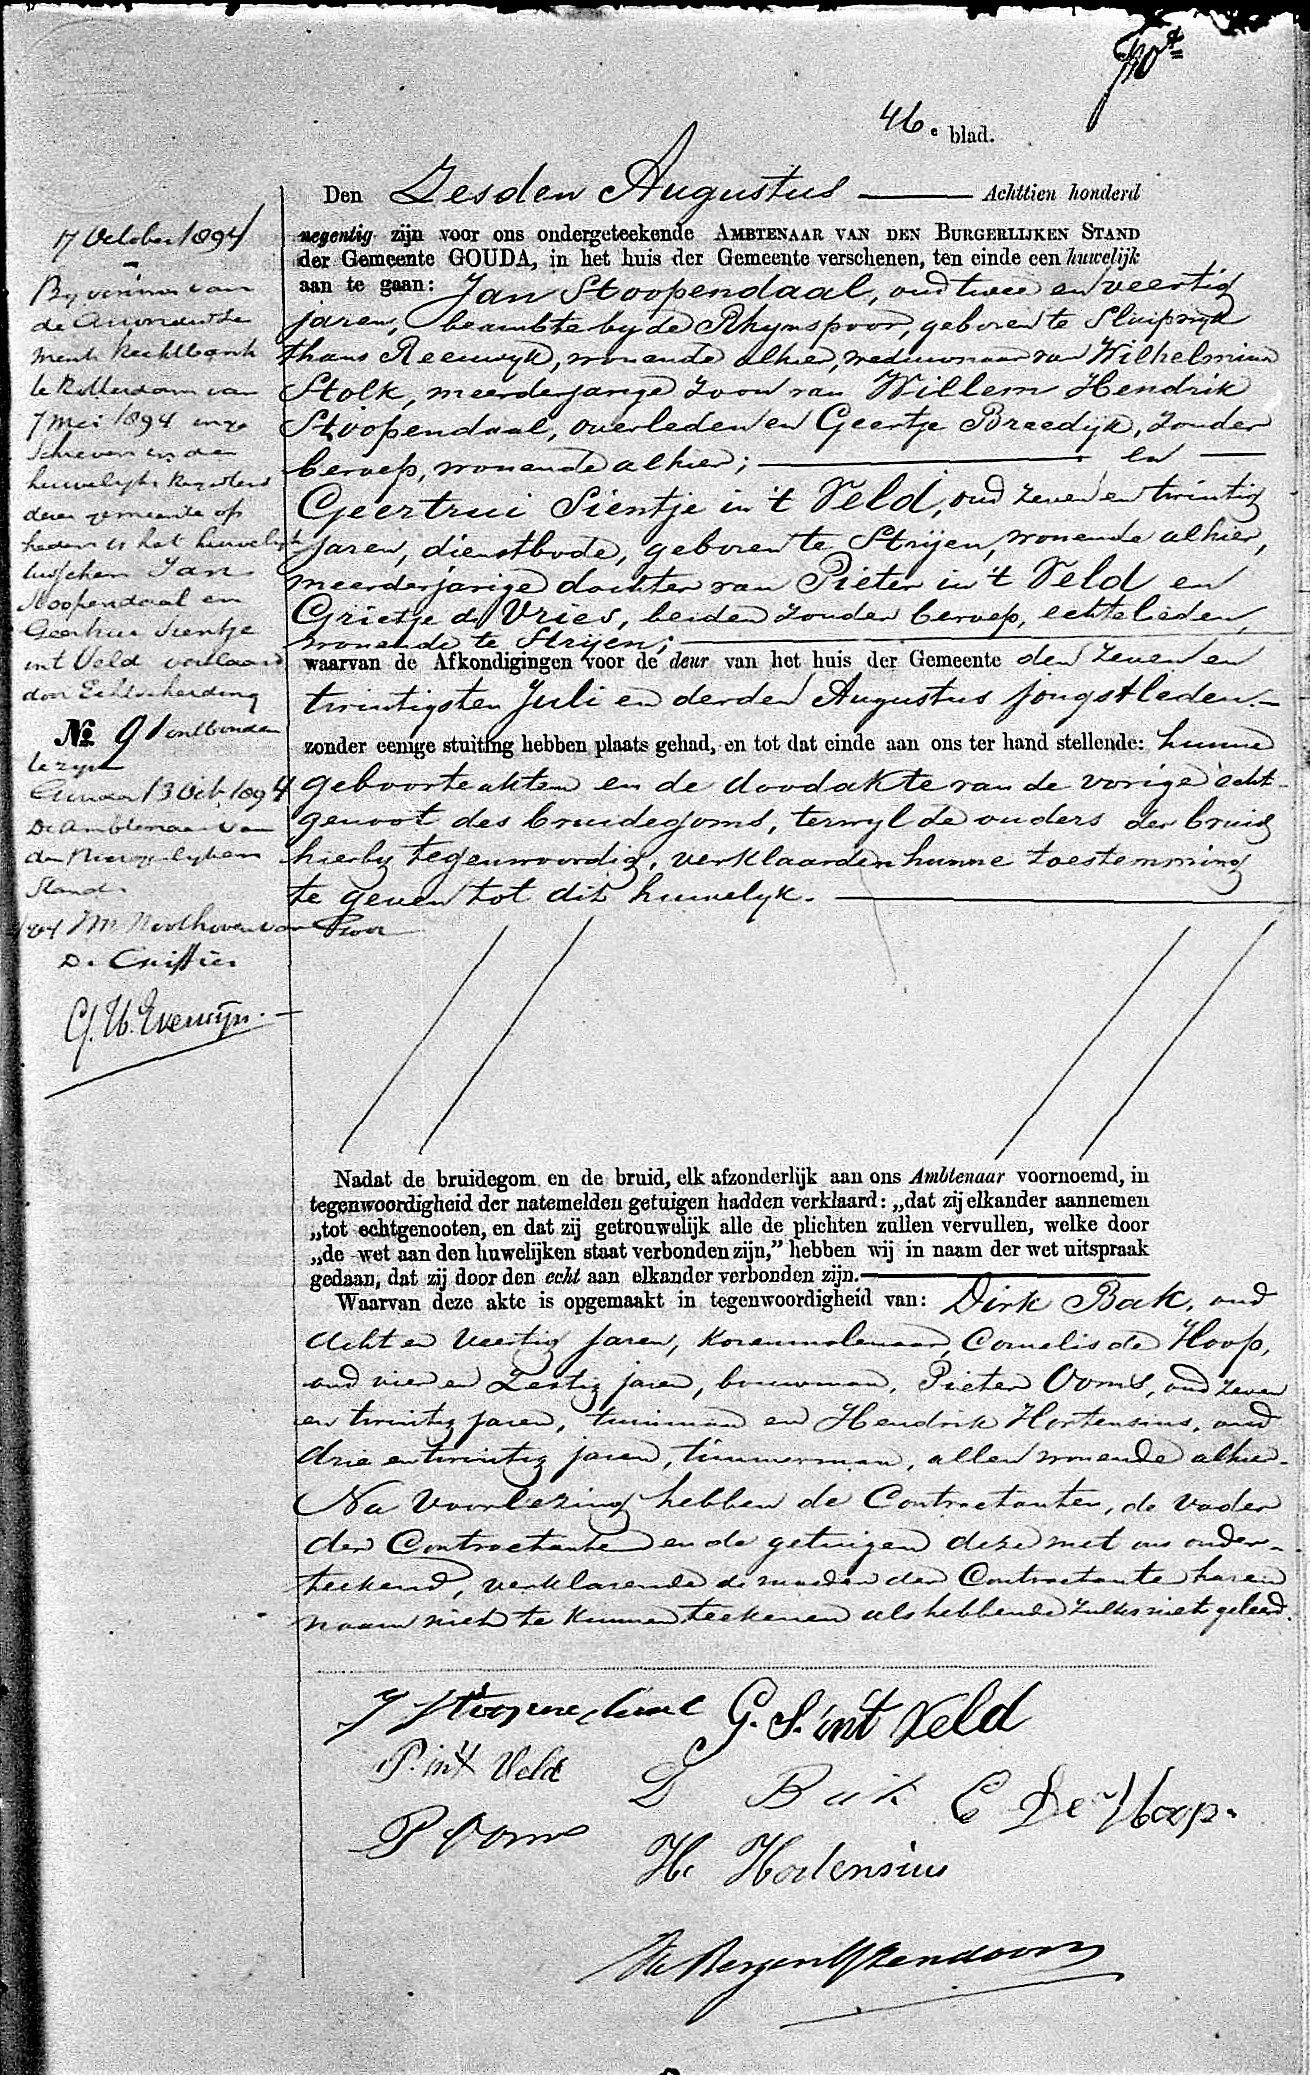 46e blad.
Den Zesden Augustus Achttien honderd
negentig zijn voor ons ondergeteekende AMBTENAAR VAN DEN BURGERLIJKEN STAND
der Gemeente GOUDA, in het huis der Gemeente verschenen, ten einde een huwelijk
aan te gaan: Jan Stoopendaal, oud twee en veertig
jaren, beambte bij de Rhynspoor, geboren te Sluipwyk
thans Reeuwyk, wonende alhier, weduwnaar van Wilhelmina
Stolk, meerderjarige zoon van Willem Hendrik
Stoopendaal, overleden en Geertje Breedijk, zonder
beroep, wonende alhier; en
Geertrui Sientje in 't Veld, oud zeven en twintig
jaren, dienstbode, geboren te Strijen, wonende alhier,
meerderjarige dochter van Pieter in 't Veld en
Grietje de Vries, beiden zonder beroep, echtelieden,
wonende te Strijen;
waarvan de Afkondigingen voor de deur van het huis der Gemeente den zeven en
twintigsten Juli en derden Augustus jongstleden.
zonder eenige stuiting hebben plaats gehad, en tot dat einde aan ons ter hand stellende: hunne
geboorteakten en de doodakte van de vorige echt-
genoot des bruidegoms, terwyl de ouders der bruid
hierby tegenwoordig, verklaarden hunne toestemming
te geven tot dit huwelyk.
17 October 1894
By vonnis van
de Arrondisse
ments Rechtbank
te Rotterdam van
7 Mei 1894 inge
schreven in den
huwelijks registers
dezer gemeente op
heden is het huwelijk
tusschen Jan
Stoopendaal en
Geertrui Sientje
int Veld verklaard
door Echtscheiding
No 91 ontbonden
te zijn
Gouda 13 Oct. 1894
De Ambtenaar van
den Burgerlijken
Stand
De Griffier
Nadat de bruidegom en de bruid, elk afzonderlijk aan ons Ambtenaar voornoemd, in
tegenwoordigheid der natemelden getuigen hadden verklaard: „dat zij elkander aannemen
„tot echtgenooten, en dat zij getrouwelijk alle de plichten zullen vervullen, welke door
„de wet aan den huwelijken staat verbonden zijn,” hebben wij in naam der wet uitspraak
gedaan, dat zij door den echt aan elkander verbonden zijn.
Waarvan deze akte is opgemaakt in tegenwoordigheid van: Dirk Bak, oud
acht en veertig jaren, korenmolenaar, Cornelis de Hoop,
oud vier en zestig jaren, bouwman, Pieter Ooms, oud zeven
en twintig jaren, tuinman en Hendrik Hortensius, oud
drie en twintig jaren, timmerman, allen wonende alhier.
Na voorlezing hebben de Contractanten, de vader
der Contractante en de getuigen deze met ons onder-
teekend, verklarende de moeder der Contractante haren
naam niet te kunnen teekenen als hebbende zulks niet geleerd.
J Stoopendaal G. S. int Veld
P. in't Veld D Bak C De Hoop.
P Ooms H. Hortensius